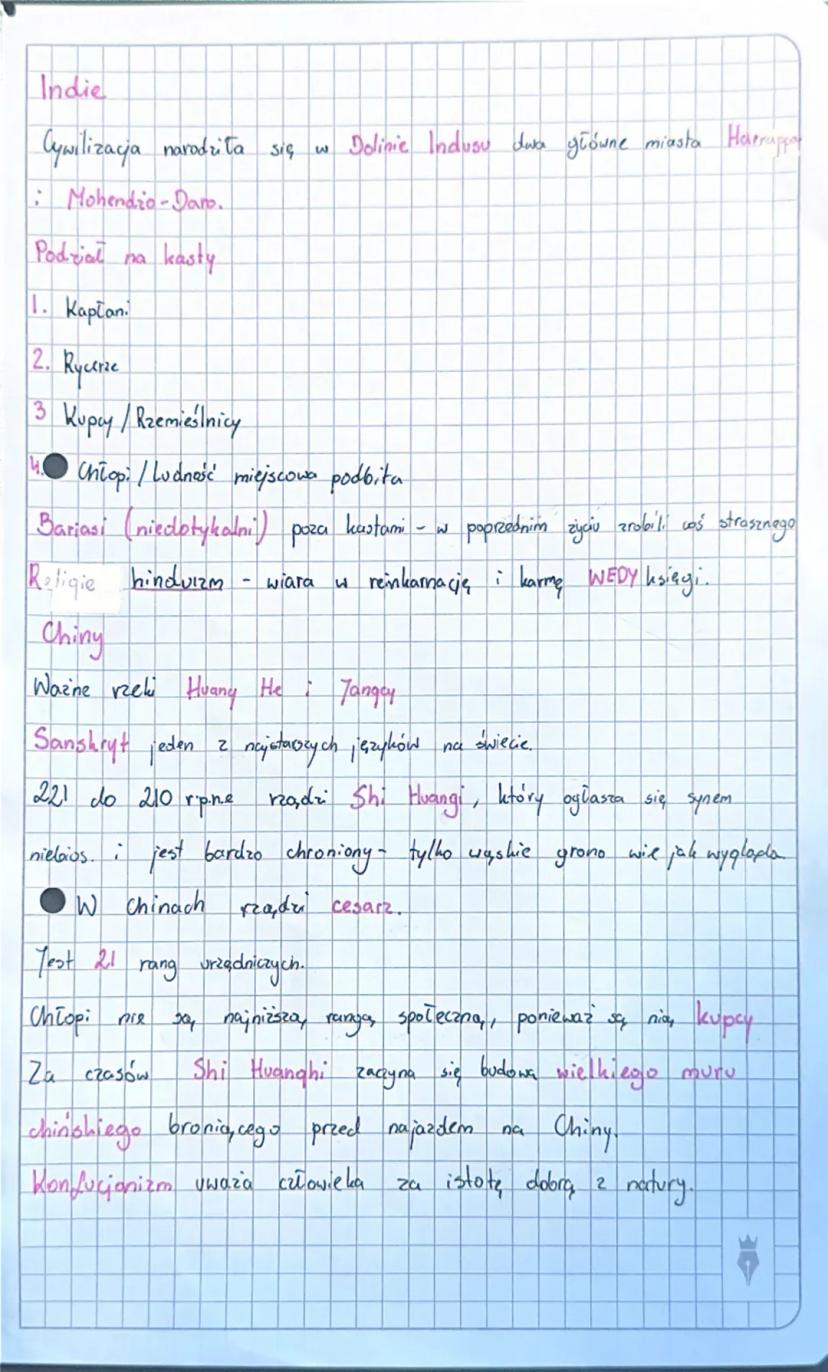 Indie
Cywilizacja narodziła się w Dolinie Indusu dwa główne miasta Harrappa
i Mohendżo-Daro.
Podział na kasty
1. Kapłani
2. Rycerze
3 Kupcy / Rzemieślnicy
4. Chłopi / Ludność miejscowa podbita
Bariasi (niedotykalni) poza kastami - w poprzednim życiu zrobili coś strasznego
Religie hinduizm - wiara w reinkarnację i karmę WEDY księgi.
Chiny
Ważne rzeki Huang He i Jangcy
Sanskryt jeden z najstarszych języków na świecie.
221 do 210 r.p.n.e rządzi Shi Huangi, który ogłasza się synem
niebios. i jest bardzo chroniony - tylko wąskie grono wie jak wygląda
W Chinach rządzi cesarz.
Jest 21 rang urzędniczych.
Chłopi nie są najniższą rangą społeczną, ponieważ są nią kupcy
Za czasów Shi Huanghi zaczyna się budowa wielkiego muru
chińskiego broniącego przed najazdem na Chiny.
Konfucjonizm uważa człowieka za istotę dobrą z natury.